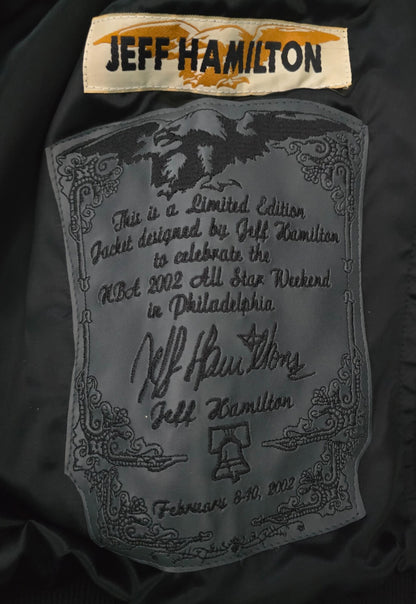 JEFF HAMILTON
This is a Limited Edition
Jacket designed by Jeff Hamilton
to celebrate the
NBA 2002 All Star Weekend
in Philadelphia
Jeff Hamilton
Jeff Hamilton
February 8-10, 2002